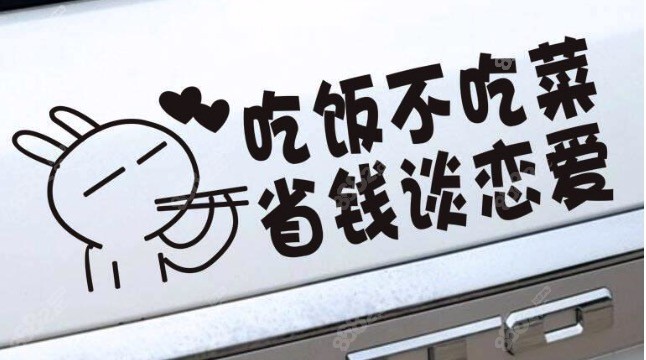 吃饭不吃菜
省钱谈恋爱